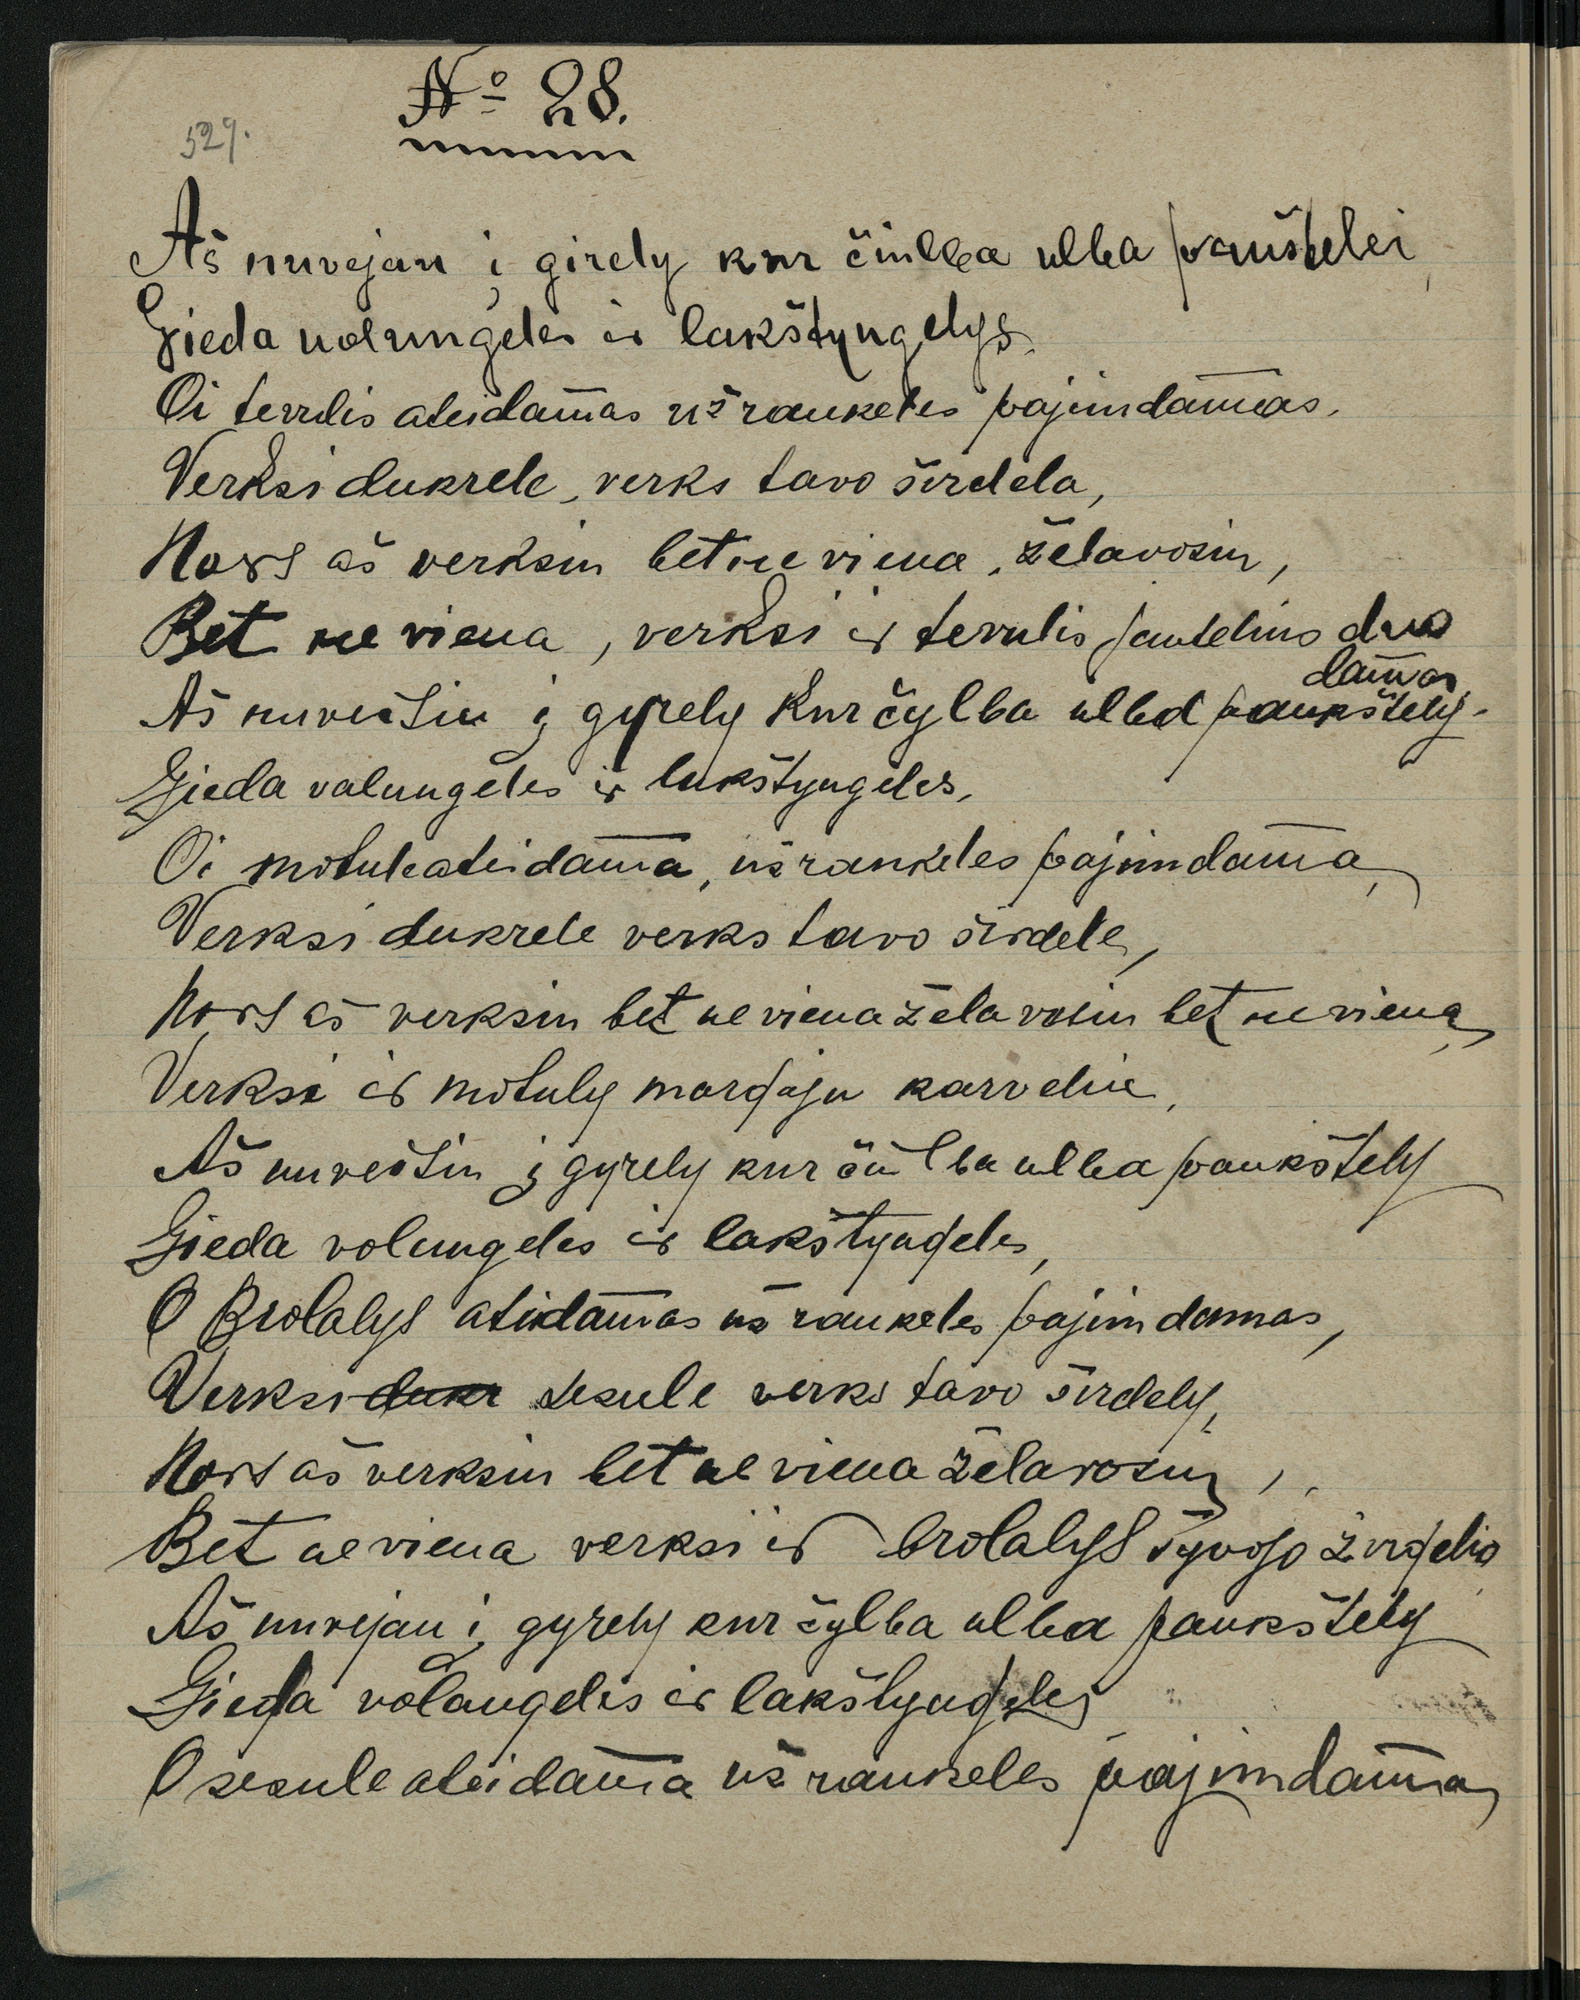 № 28.
529.
Aš nuvejau į girely kur čiulba ulba paukštelei,
Gieda volungeles ir lakštyngelys.
Oi tevulis ateidamas už rankeles pajimdamas.
Verksi dukrele, verks tavo širdela,
Nors aš verksiu bet ne viena, želavosiu,
Bet ne viena, verksi ir tevulis jautelius duo
damas
Aš nuveišiu į gyrely kur čylba ulba paukštely.
Gieda valungeles ir lukštyngeles,
Oi motule ateidama, už rankeles pajimdama,
Verksi dukrele verks tavo širdele,
Nors aš verksiu bet ne viena želavosiu bet ne viena,
Verksi ir motuly margaju karvelie,
Aš nuveišiu į gyrely kur čiulba ulba paukštely
Gieda volungeles ir lakštyngeles,
O Brolalys ateidamas už rankeles pajimdamas,
Verksi dukr sesule verks tavo širdely,
Nors aš verksiu bet ne viena želavosiu,
Bet ne viena verksi ir brolalys syvojo žirgelio
Aš nuvejau į gyrely kur čylba ulba paukštely
Gieda volangeles ir lakštyngeles
O sesule ateidama už rankeles pajimdama,